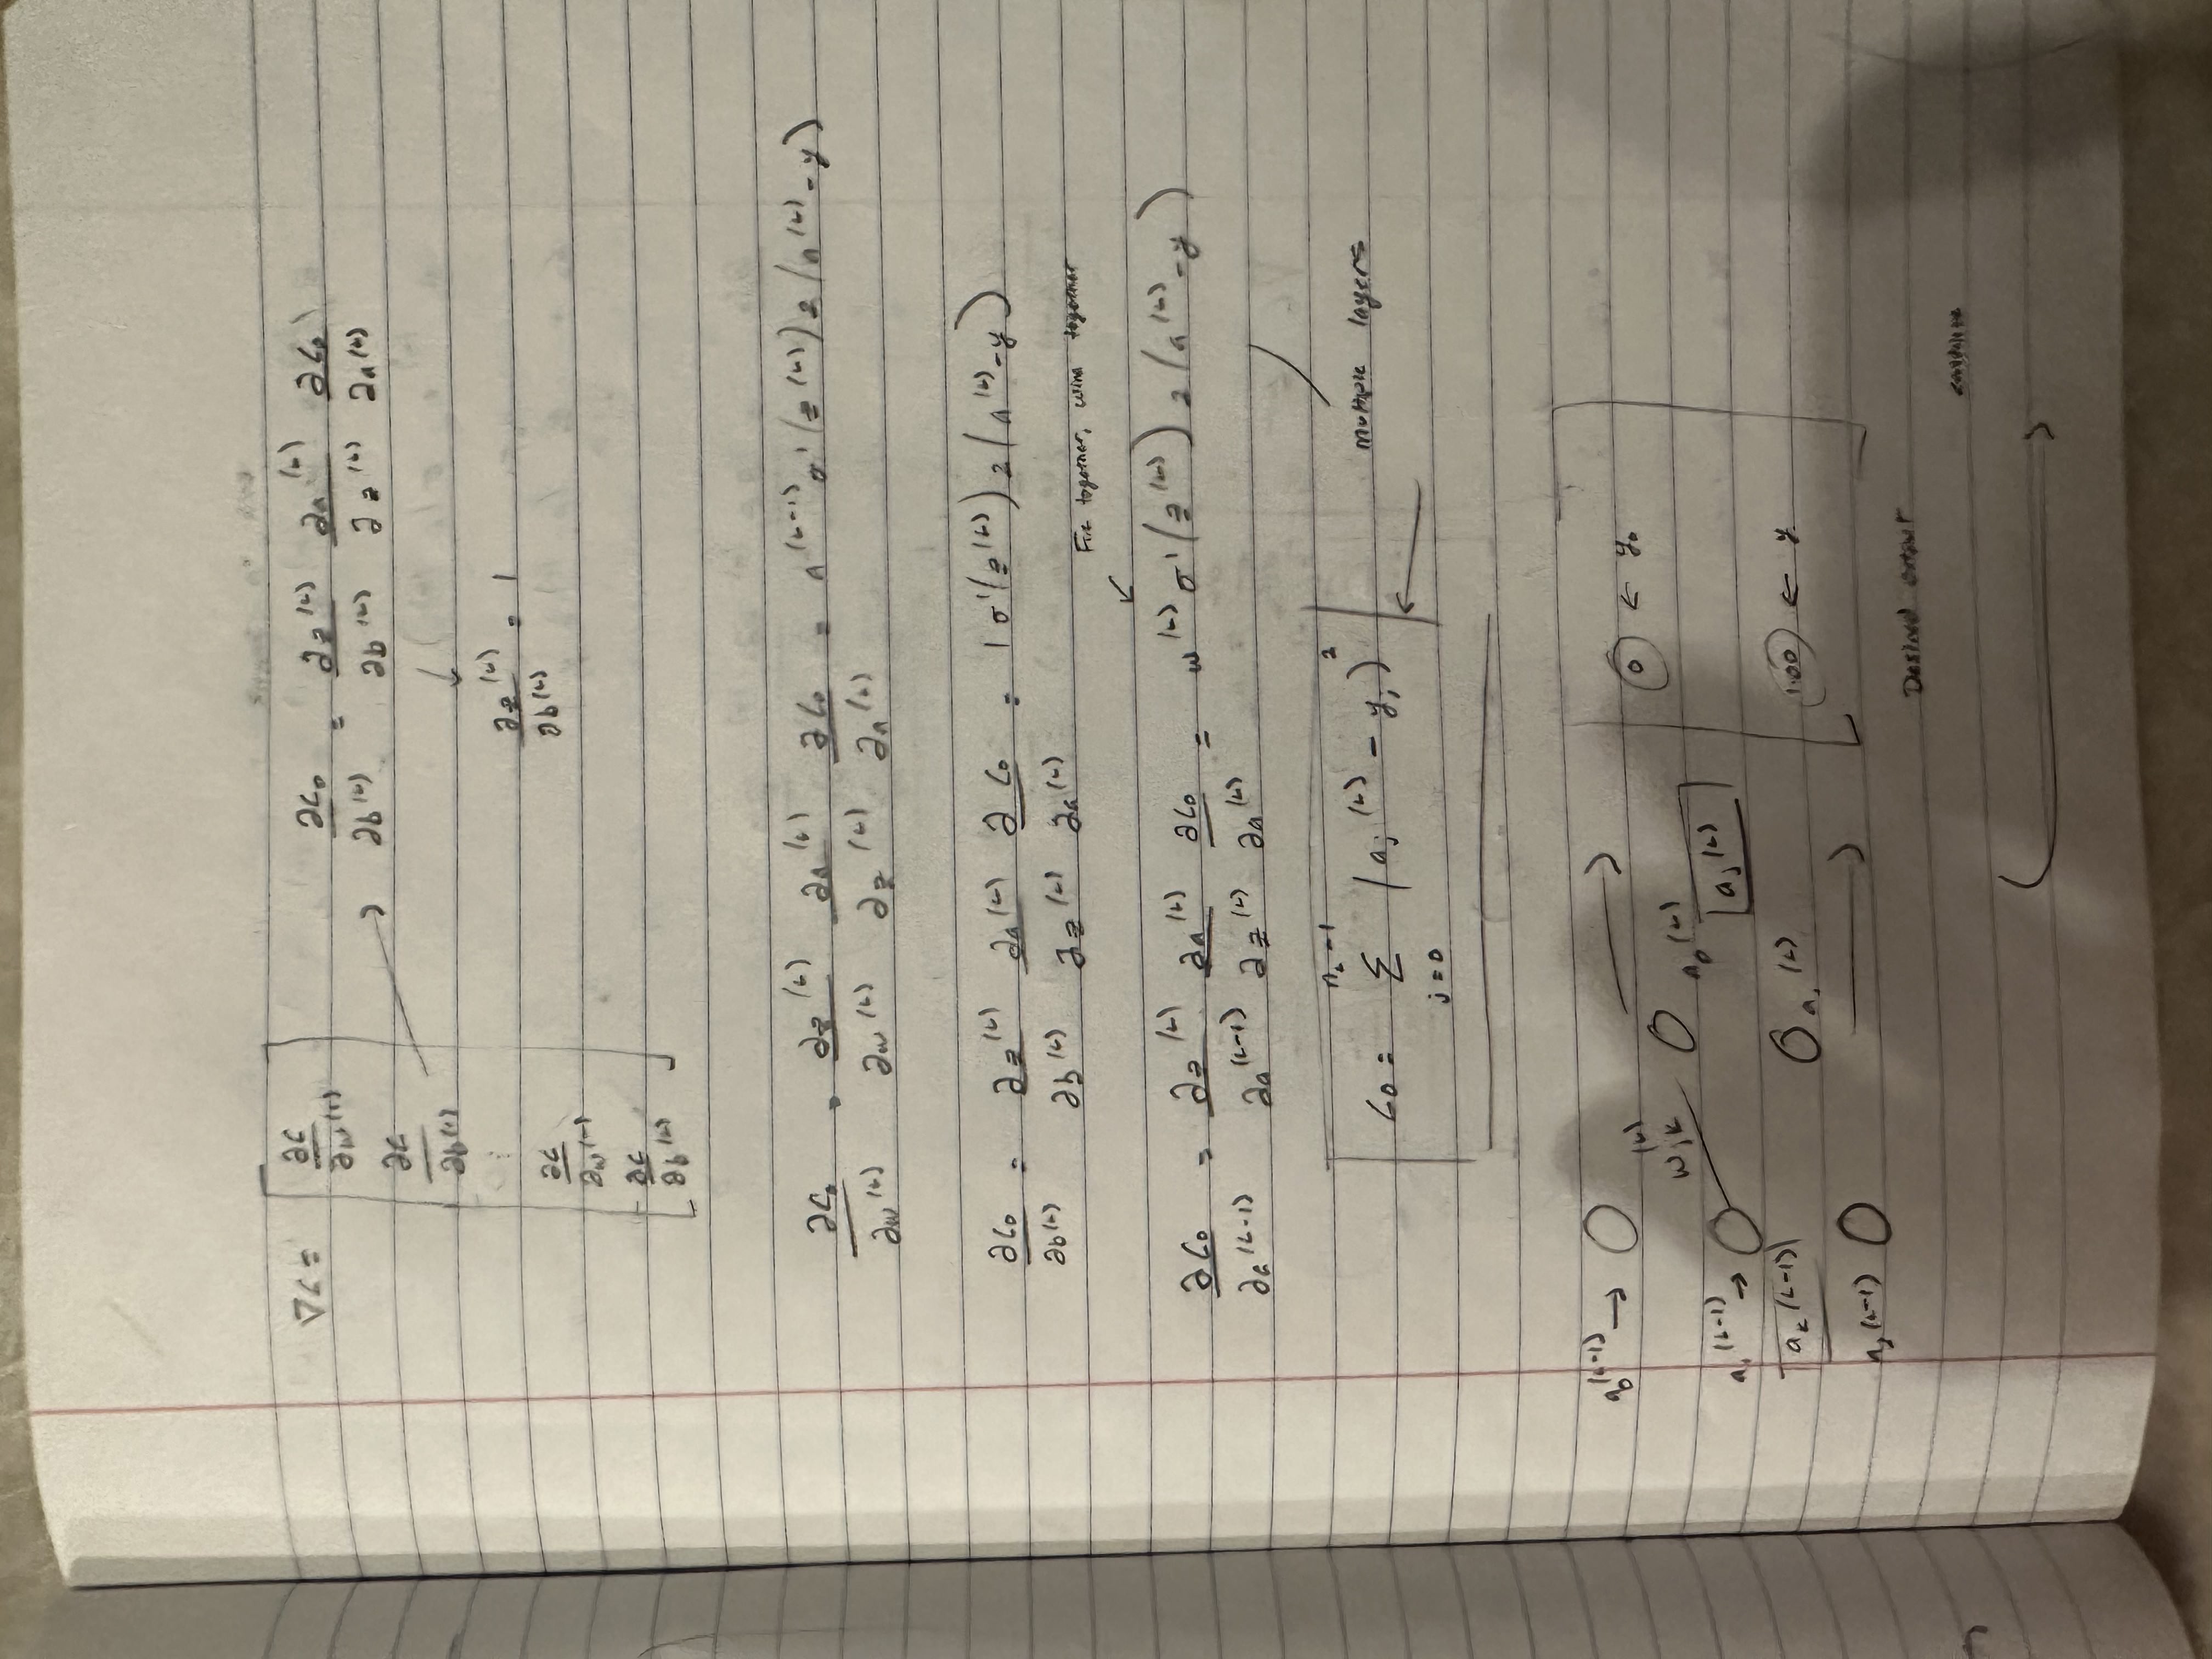 ∇C = [ ∂C/∂w^(1) ∂C/∂b^(1) ⋮ ∂C/∂w^(L) ∂C/∂b^(L) ]
→ ∂C₀/∂b^(L) = ∂z^(L)/∂b^(L) ∂a^(L)/∂z^(L) ∂C₀/∂a^(L)
↓
∂z^(L)/∂b^(L) = 1
∂C₀/∂w^(L) = ∂z^(L)/∂w^(L) ∂a^(L)/∂z^(L) ∂C₀/∂a^(L) = a^(L-1) σ'(z^(L)) 2(a^(L) - y)
∂C₀/∂b^(L) = ∂z^(L)/∂b^(L) ∂a^(L)/∂z^(L) ∂C₀/∂a^(L) = 1 σ'(z^(L)) 2(a^(L) - y)
Fire together, wire together
↙
∂C₀/∂a^(L-1) = ∂z^(L)/∂a^(L-1) ∂a^(L)/∂z^(L) ∂C₀/∂a^(L) = w^(L) σ'(z^(L)) 2(a^(L) - y)
C₀ = Σ_{j=0}^{n_L - 1} (a_j^(L) - y_j)²
← Multiple layers
a₀^(L-1) →
0 ← y₀
w_jk^(L)
a₀^(L)
a_j^(L)
a₁^(L-1) →
a_k^(L-1)
a₁^(L)
1.00 ← y
(L-1)
Desired output